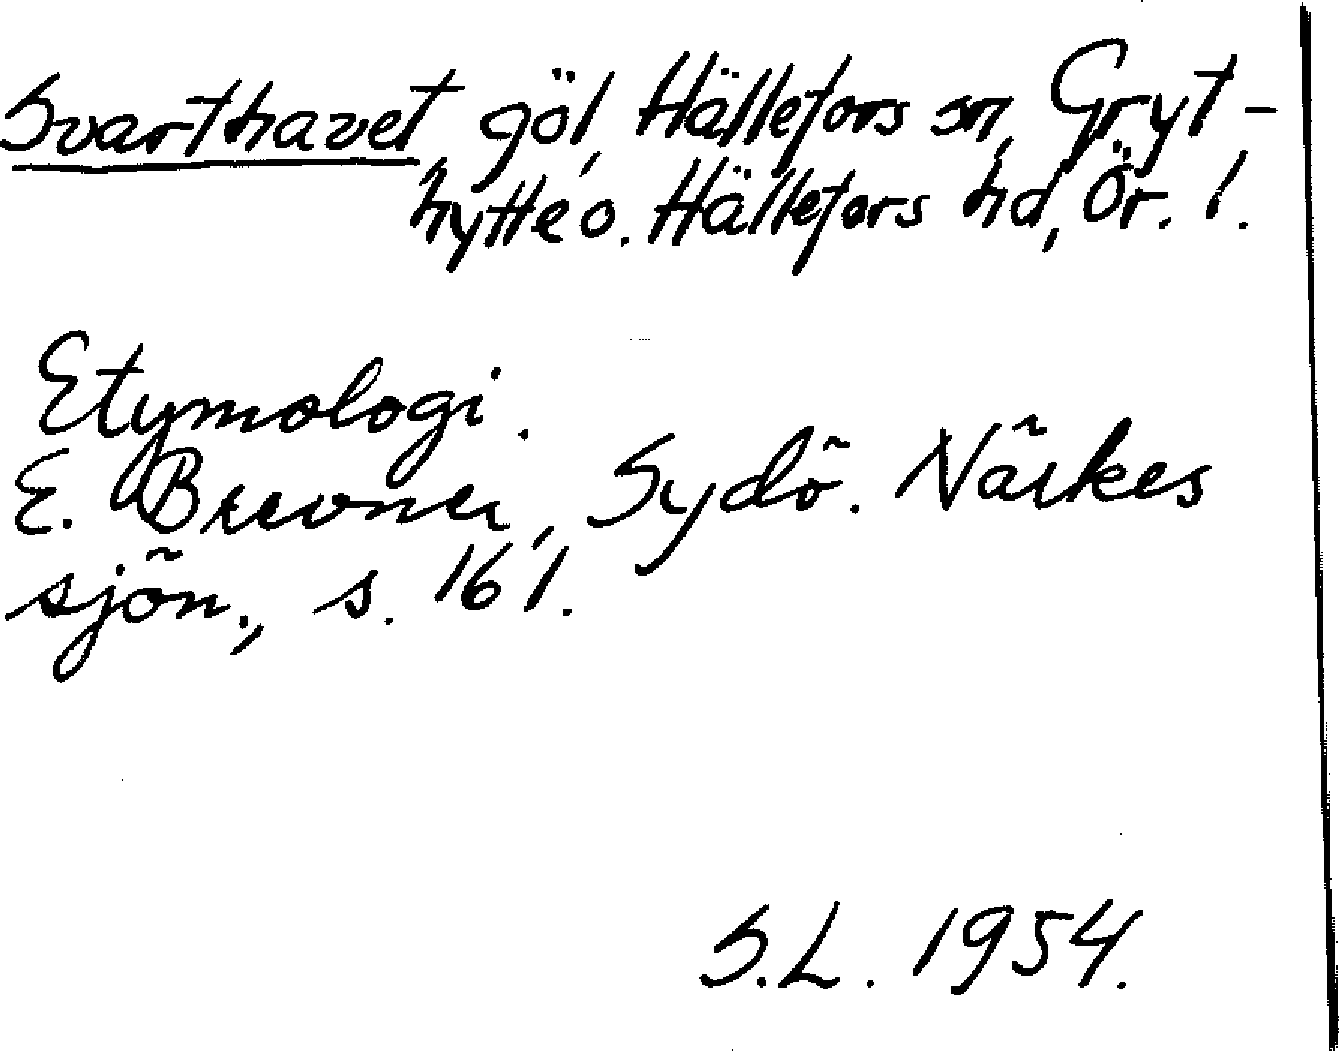 Svarthavet, göl, Hällefors sn, Gryt-
hytte o. Hällefors hd, Ör. l.
Etymologi.
E. Brevner, Sydö. Närkes
sjön., s. 161.
S.L. 1954.